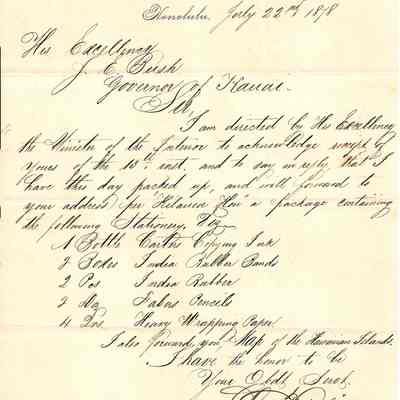 Honolulu, July 22nd 1878
His Excellency
J. E. Bush
Govenor of Kauai.
Sir,
I am directed by His Excellency
the Minister of the Interior to acknowledge receipt of
yours of the 15th inst. and to say in reply that I
have this day packed up, and will forward to
your address per a package containing
the following Stationery, Viz
1 Bottle Carters Copying Ink
2 Boxes India Rubber Bands
2 Pcs India Rubber
2 Dz Fabers Pencils
4 Heavy Wrapping Paper
I also forward you Map of the Hawaiian Islands.
I have the honor to be
Your Obdt Servt.